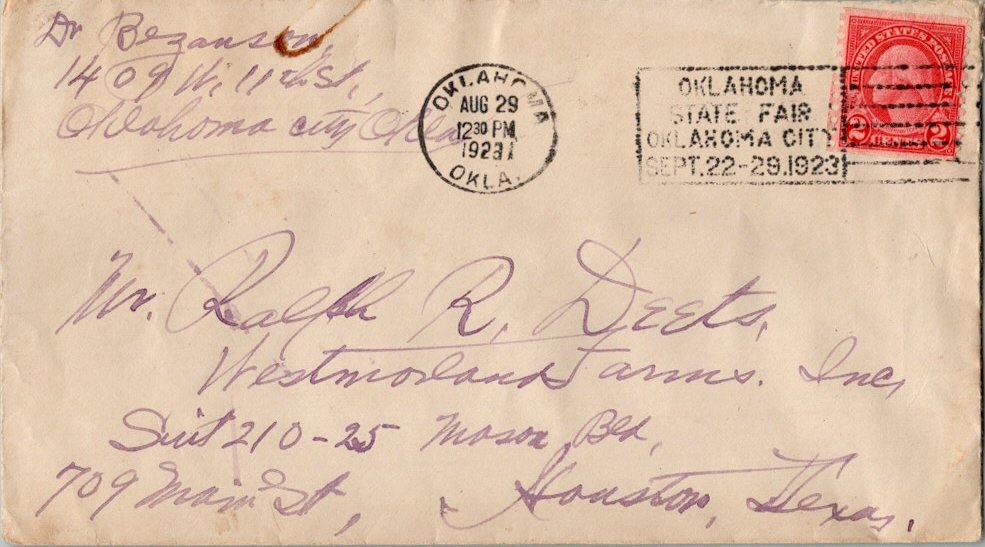 Dr Bezanson,
1409 W. 11th St.,
Oklahoma city Okla
OKLAHOMA
AUG 29
1230 PM
1923
OKLA.
OKLAHOMA
STATE FAIR
OKLAHOMA CITY
SEPT. 22-29.1923
UNITED STATES POSTAGE
2 CENTS 2
Mr. Ralph R. Deets,
Westmoreland Farms. Inc,
Suit 210-25 Mason Bld,
709 Main St, Houston, Texas.